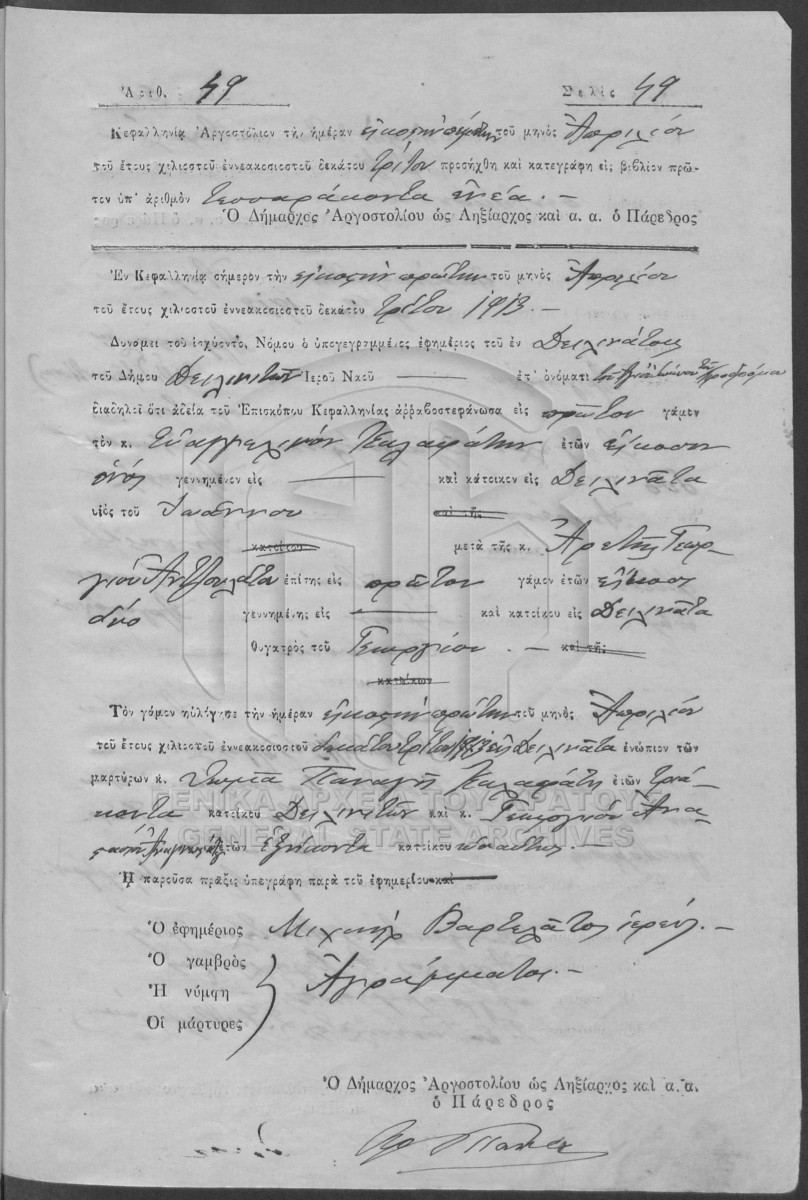 Ἀριθ. 49 Σελὶς 49
Κεφαλληνία Ἀργοστόλιον τὴν ἡμέραν εἰκοστὴν πέμπτην τοῦ μηνὸς Ἀπριλίου
τοῦ ἔτους χιλιοστοῦ ἐννεακοσιοστοῦ δεκάτου τρίτου προσήχθη καὶ κατεγράφη εἰς βιβλίον πρῶ-
τον ὑπ' ἀριθμὸν τεσσαράκοντα ἐννέα. —
Ὁ Δήμαρχος Ἀργοστολίου ὡς Ληξίαρχος καὶ α. α. ὁ Πάρεδρος
Ἐν Κεφαλληνίᾳ σήμερον τὴν εἰκοστὴν πρώτην τοῦ μηνὸς Ἀπριλίου
τοῦ ἔτους χιλιοστοῦ ἐννεακοσιοστοῦ δεκάτου τρίτου 1913. —
Δυνάμει τοῦ ἰσχύοντο, Νόμου ὁ ὑπογεγραμμένος ἐφημέριος τοῦ ἐν Δειλινάτοις
τοῦ Δήμου Δειλινατῶν Ἱεροῦ Ναοῦ — ἐπ' ὀνόματι τοῦ Ἁγίου Ἰωάννου τοῦ Προδρόμου
διαδηλοῖ ὅτι ἀδείᾳ τοῦ Ἐπισκόπου Κεφαλληνίας ἀρραβοστεφάνωσα εἰς πρῶτον γάμον
τὸν κ. Εὐαγγελινὸν Καλαφάτην ἐτῶν εἴκοσιν
ἑνός γεννημένον εἰς — καὶ κάτοικον εἰς Δειλινᾶτα
υἱὸς τοῦ Ἰωάννου καὶ τῆς
κατοίκου μετὰ τῆς κ. Ἀρετῆς Γεωρ-
γίου Ἀντζουλάτου ἐπίσης εἰς πρῶτον γάμον ἐτῶν εἴκοσι
δύο γεννημένης εἰς — καὶ κατοίκου εἰς Δειλινᾶτα
θυγατρὸς τοῦ Γεωργίου. — καὶ τῆς
κατοίκων
Τὸν γάμον ηὐλόγησε τὴν ἡμέραν εἰκοστὴν πρώτην τοῦ μηνὸς Ἀπριλίου
τοῦ ἔτους χιλιοστοῦ ἐννεακοσιοστοῦ δεκάτου τρίτου 1913 εἰς Δειλινᾶτα ἐνώπιον τῶν
μαρτύρων κ. Θωμᾶ Παναγῆ Καλαφάτη ἐτῶν τριά-
κοντα κατοίκου Δειλινατῶν καὶ κ. Γεωργίου Ἀνα-
ἐτῶν ἑξήκοντα κατοίκου ὡσαύτως. —
Ἡ παροῦσα πρᾶξις ὑπεγράφη παρὰ τοῦ ἐφημερίου καὶ
Ὁ ἐφημέριος Μιχαὴλ Βαρτελᾶτος ἱερεύς. —
Ὁ γαμβρὸς
Ἡ νύμφη Ἀγράμματοι. —
Οἱ μάρτυρες
Ὁ Δήμαρχος Ἀργοστολίου ὡς Ληξίαρχος καὶ α. α.
ὁ Πάρεδρος
ΓΕΝΙΚΑ ΑΡΧΕΙΑ ΤΟΥ ΚΡΑΤΟΥΣ
GENERAL STATE ARCHIVES